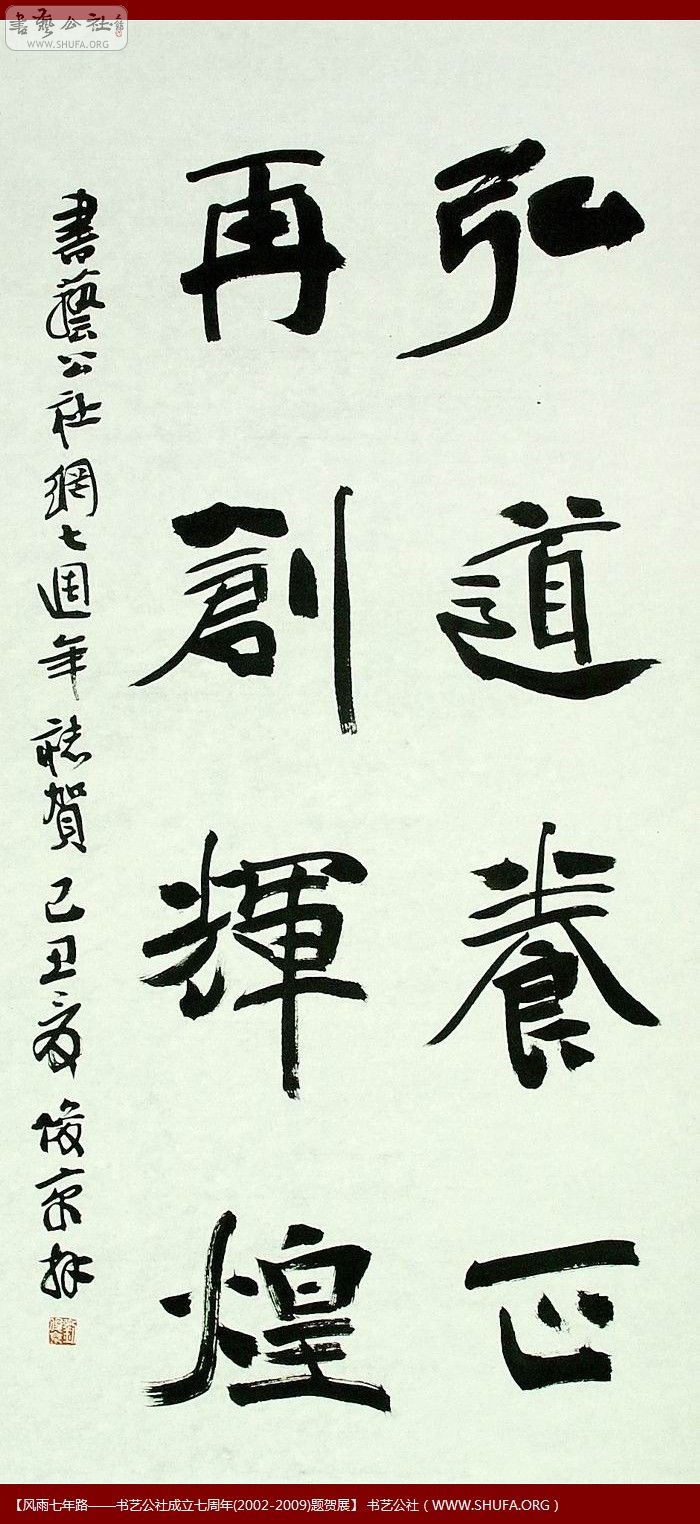 書藝公社
WWW.SHUFA.ORG
弘道養正
再創輝煌
書藝公社網七週年誌賀 己丑夏 俊京拜
【风雨七年路——书艺公社成立七周年(2002-2009)题贺展】 书艺公社（WWW.SHUFA.ORG）